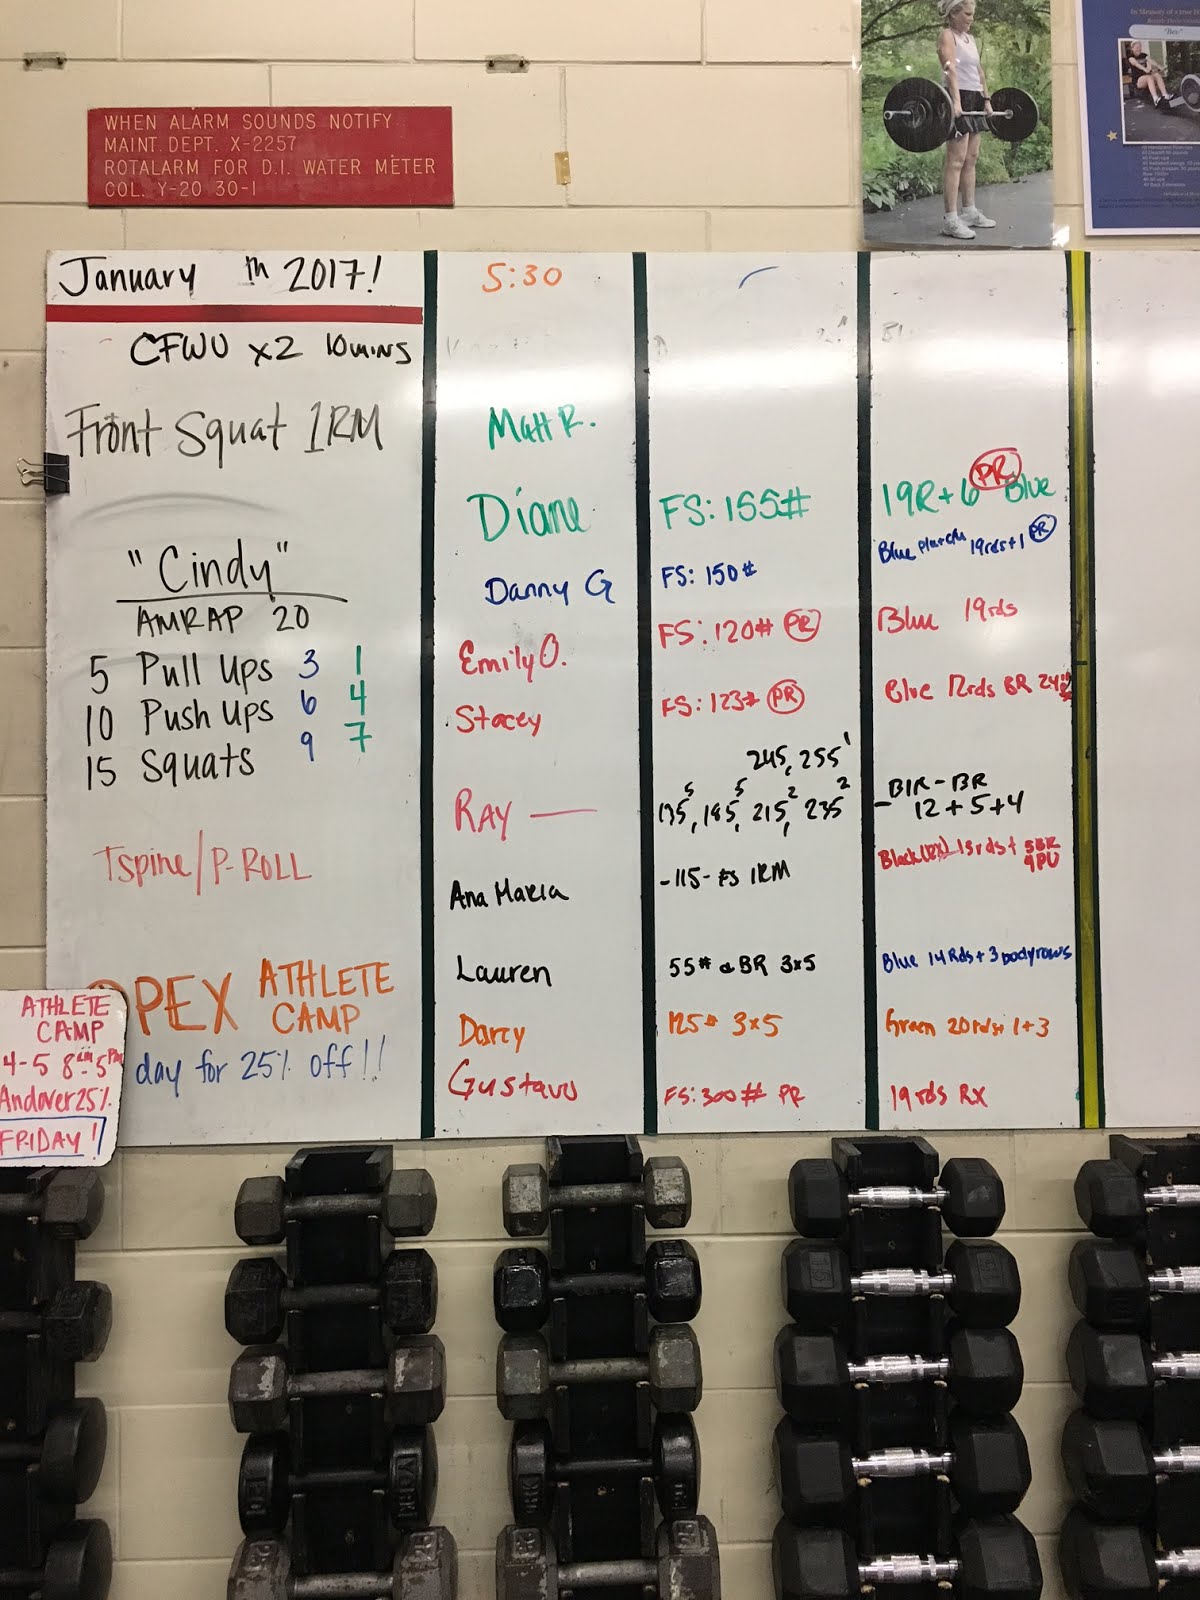 WHEN ALARM SOUNDS NOTIFY
MAINT. DEPT. X-2257
ROTALARM FOR D.I. WATER METER
COL. Y-20 30-1
In Memory of a true
"Bev"
January th 2017!
CFWU x2 10mins
Front Squat 1RM
"Cindy"
AMRAP 20
5 Pull Ups 3 1
10 Push Ups 6 4
15 Squats 9 7
Tspine/P-ROLL
OPEX ATHLETE CAMP
day for 25% off!!
ATHLETE
CAMP
4-5 8am 5pm
Andover 25%
FRIDAY!
5:30
Matt R.
Diane FS: 155# 19R+6 PR Blue
Danny G FS: 150# Blue 19rds+1 PR
Emily O. FS: 120# PR Blue 19rds
Stacey FS: 123# PR Blue 12rds BR
245, 255 1
RAY — 135 5, 185 5, 215 2, 235 2 - B1R - BR
12 + 5 + 4
Ana Maria -115- FS 1RM Black(RX) 15rds + 5BR 9PU
Lauren 55# BR 3x5 Blue 14Rds + 3 bodyrows
Darcy 125# 3x5 Green 20rds 1+3
Gustavo FS: 300# PR 19rds RX
15
15
YORK